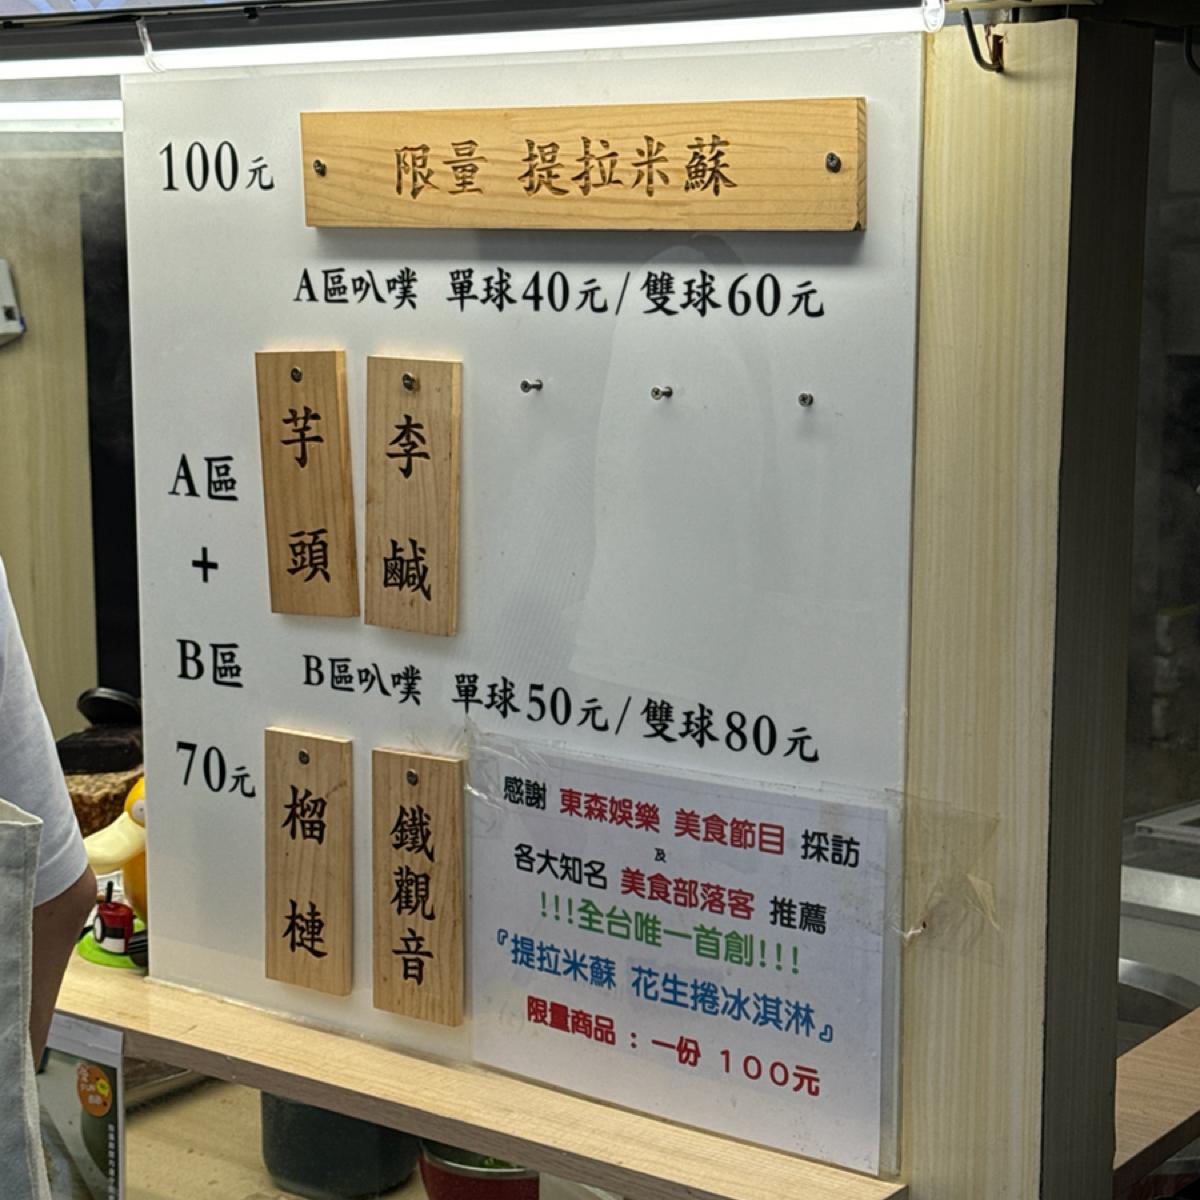 100元 限量 提拉米蘇
A區叭噗 單球40元/雙球60元
芋頭
李鹹
A區
+
B區
70元
B區叭噗 單球50元/雙球80元
榴槤
鐵觀音
感謝 東森娛樂 美食節目 採訪
及
各大知名 美食部落客 推薦
!!!全台唯一首創!!!
『提拉米蘇 花生捲冰淇淋』
限量商品：一份 100元